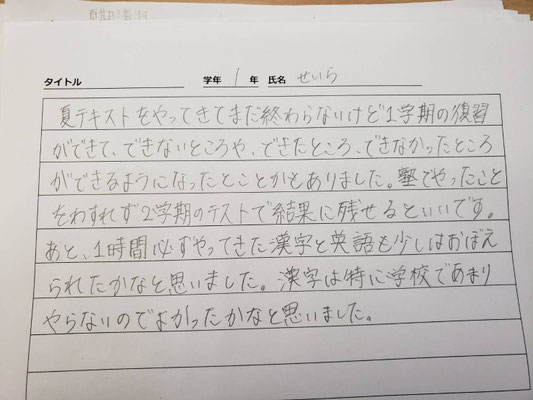 タイトル 学年 1 年 氏名 せいら
夏テキストをやってきてまだ終わらないけど1学期の復習
ができて、できないところや、できたところ、できなかったところ
ができるようになったとことかもありました。塾でやったこと
をわすれず2学期のテストで結果に残せるといいです。
あと、1時間必ずやってきた漢字と英語も少しはおぼえ
られたかなと思いました。漢字は特に学校であまり
やらないのでよかったかなと思いました。